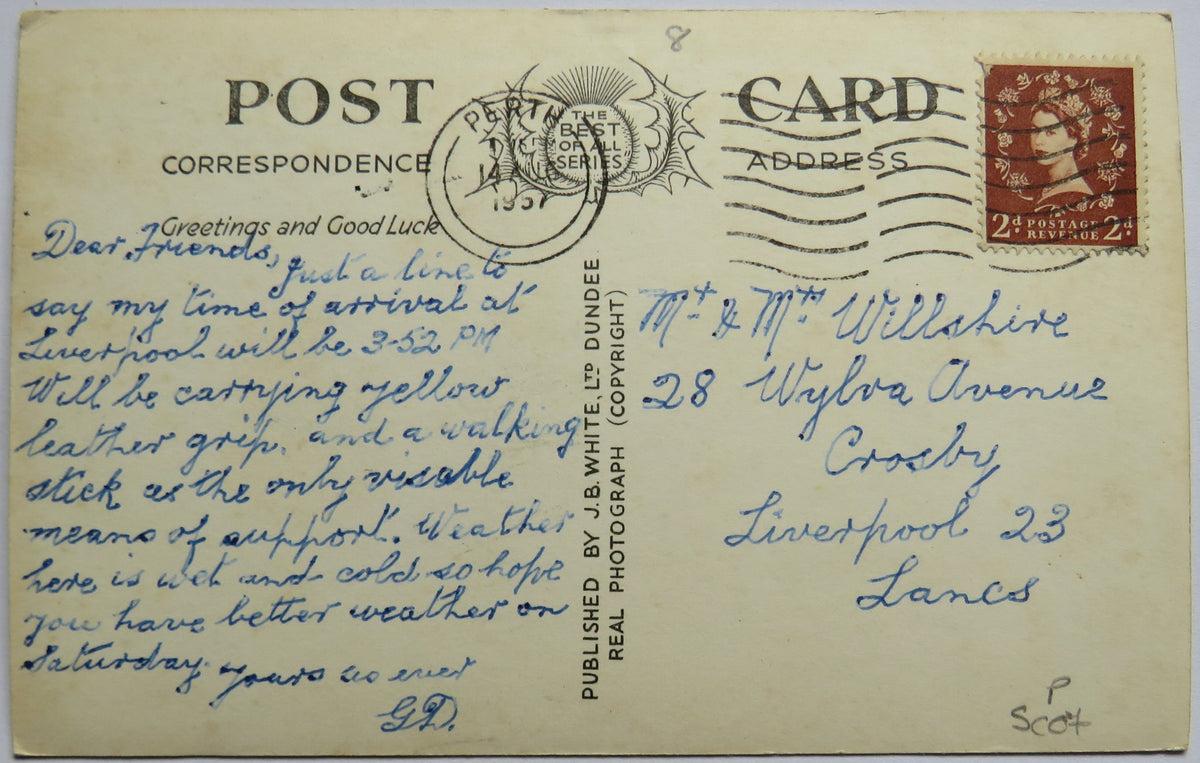 8
POST CARD
CORRESPONDENCE
ADDRESS
THE
BEST
OF ALL
SERIES
PERTH
1957
2d POSTAGE REVENUE 2d
Greetings and Good Luck
Dear Friends,
Just a line to
say my time of arrival at
Liverpool will be 3-52 PM
Will be carrying yellow
leather grip. and a walking
stick as the only visable
means of support. Weather
here is wet and cold so hope
you have better weather on
Saturday.
Yours as ever
GD.
PUBLISHED BY J. B. WHITE, LTD DUNDEE
REAL PHOTOGRAPH (COPYRIGHT)
Mr & Mrs Willshire
28 Wylva Avenue
Crosby
Liverpool 23
Lancs
P
SCOT